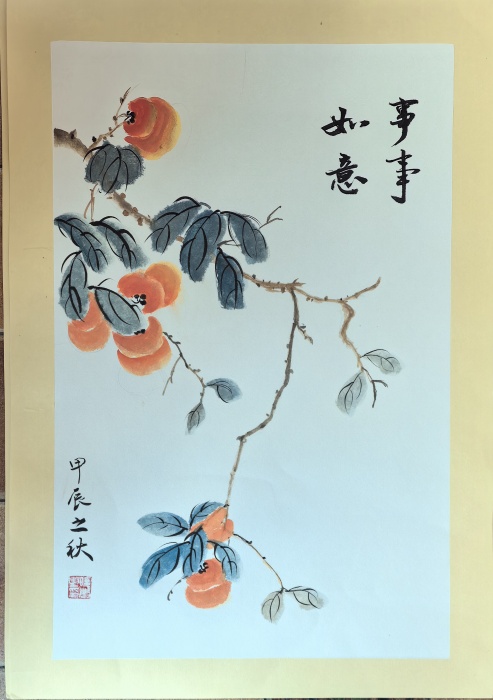 事事
如意
甲辰之秋